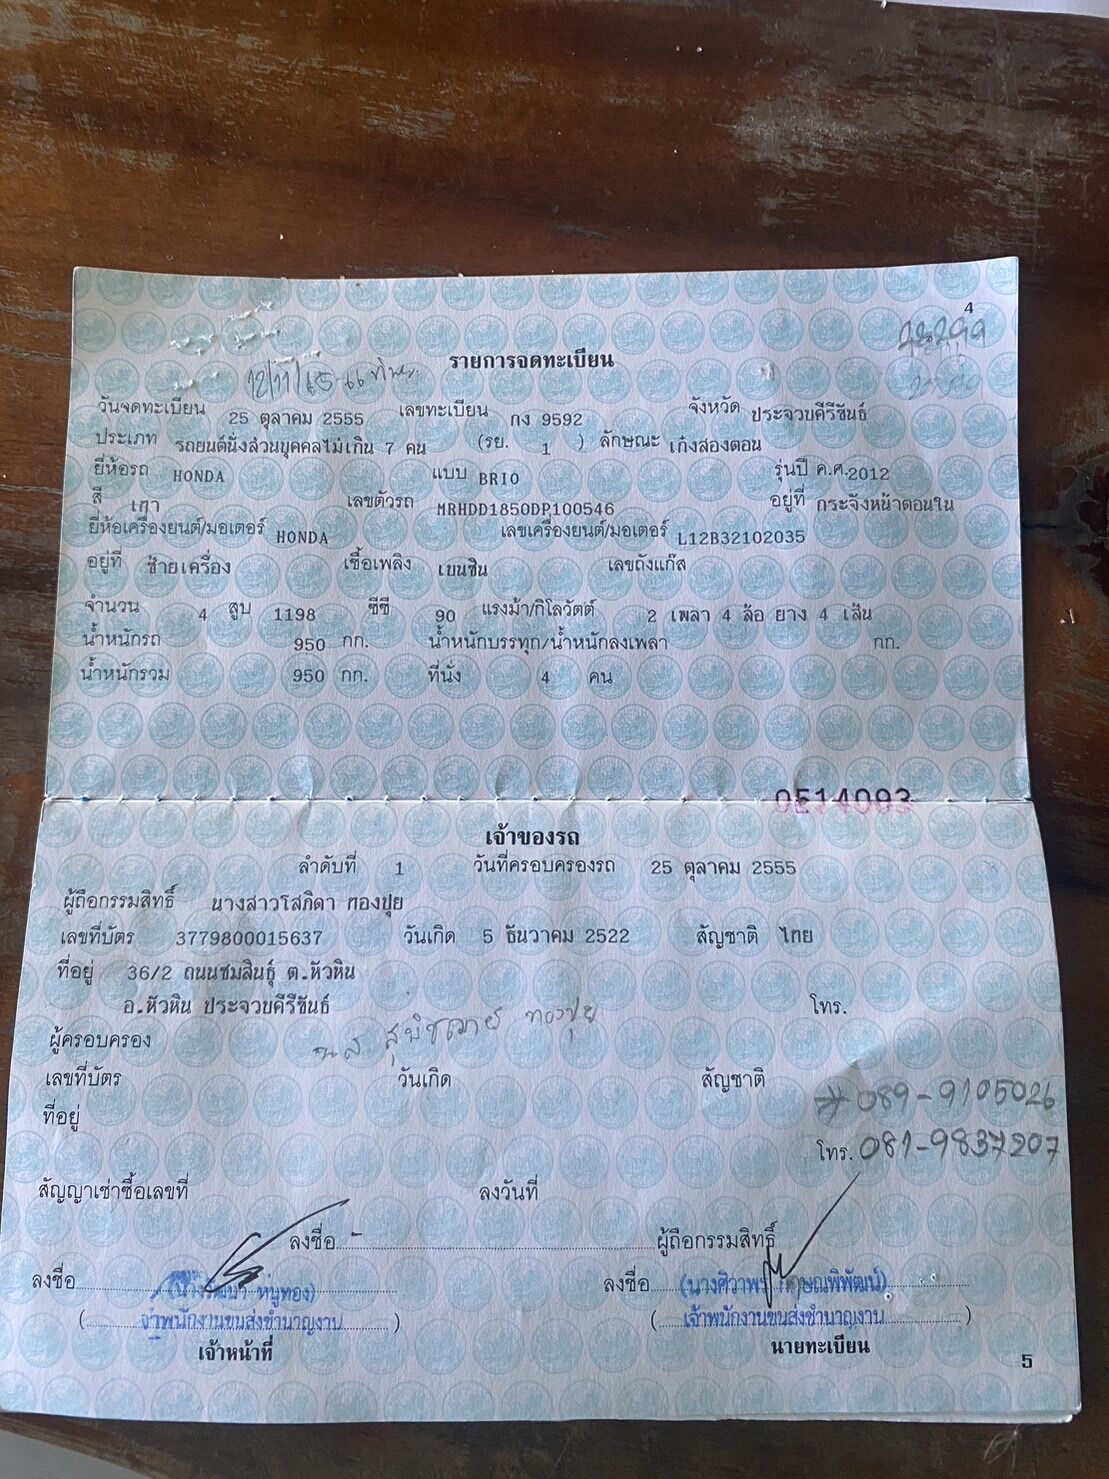 4
22299
รายการจดทะเบียน
12/11/65
วันจดทะเบียน 25 ตุลาคม 2555 เลขทะเบียน กง 9592 จังหวัด ประจวบคีรีขันธ์
ประเภท รถยนต์นั่งส่วนบุคคลไม่เกิน 7 คน (รย. 1 ) ลักษณะ เก๋งสองตอน
ยี่ห้อรถ HONDA แบบ BRIO รุ่นปี ค.ศ. 2012
สี เทา เลขตัวรถ MRHDD1850DP100546 อยู่ที่ กระจังหน้าตอนใน
ยี่ห้อเครื่องยนต์/มอเตอร์ HONDA เลขเครื่องยนต์/มอเตอร์ L12B32102035
อยู่ที่ ซ้ายเครื่อง เชื้อเพลิง เบนซิน เลขถังแก๊ส
จำนวน 4 สูบ 1198 ซีซี 90 แรงม้า/กิโลวัตต์ 2 เพลา 4 ล้อ ยาง 4 เส้น
น้ำหนักรถ 950 กก. น้ำหนักบรรทุก/น้ำหนักลงเพลา กก.
น้ำหนักรวม 950 กก. ที่นั่ง 4 คน
0514093
เจ้าของรถ
ลำดับที่ 1 วันที่ครอบครองรถ 25 ตุลาคม 2555
ผู้ถือกรรมสิทธิ์ นางสาวโสภิดา ทองปุย
เลขที่บัตร 3779800015637 วันเกิด 5 ธันวาคม 2522 สัญชาติ ไทย
ที่อยู่ 36/2 ถนนชมสินธุ์ ต.หัวหิน
อ.หัวหิน ประจวบคีรีขันธ์ โทร.
ผู้ครอบครอง น.ส. สุพิชฌาย์ ทองปุย
เลขที่บัตร วันเกิด สัญชาติ
ที่อยู่ # 089-9105026
โทร. 081-9837207
สัญญาเช่าซื้อเลขที่ ลงวันที่
ลงชื่อ ผู้ถือกรรมสิทธิ์
ลงชื่อ หนูทอง) ลงชื่อ (นางศิวาพร กฤษณพิพัฒน์)
( เจ้าพนักงานขนส่งชำนาญงาน ) ( เจ้าพนักงานขนส่งชำนาญงาน )
เจ้าหน้าที่ นายทะเบียน
5